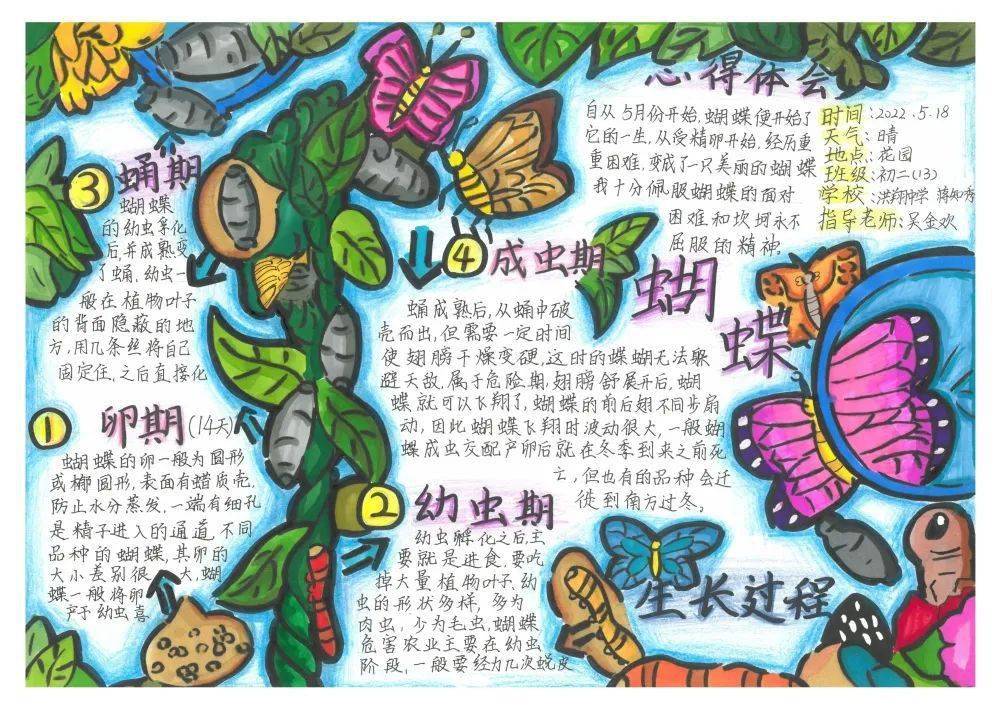 蝴蝶
生长过程
①
卵期(14天)
蝴蝶的卵一般为圆形
或椰圆形,表面有蜡质壳,
防止水分蒸发,一端有细孔
是精子进入的通道,不同
品种的蝴蝶,其卵的
大小差别很大,蝴
蝶一般将卵
产于幼虫喜
②
幼虫期
幼虫孵化之后,主
要就是进食,要吃
掉大量植物叶子,幼
虫的形状多样,多为
肉虫,少为毛虫,蝴蝶
危害农业主要在幼虫
阶段,一般要经为几次蜕皮
③
蛹期
蝴蝶
的幼虫孚化
后,并成熟变
了蛹,幼虫一
般在植物叶子
的背面隐蔽的地
方,用几条丝将自己
固定住,之后直接化
④
成虫期
蛹成熟后,从蛹中破
壳而出,但需要一定时间
使翅膀干燥变硬,这时的蝶蝴无法躲
避天敌,属于危险期,翅膀舒展开后,蝴
蝶就可以飞翔了,蝴蝶的前后翅不同步扇
动,因此蝴蝶飞翔时波动很大,一般蝴
蝶成虫交配产卵后就在冬季到来之前死
亡,但也有的品种会迁
徙到南方过冬。
心得体会
自从5月份开始,蝴蝶便开始了
它的一生,从受精卵开始,经历重
重困难,变成了一只美丽的蝴蝶
我十分佩服蝴蝶的面对
困难和坎坷永不
屈服的精神。
时间:2022.5.18
天气:晴
地点:花园
班级:初二(13)
学校:洪翔中学
指导老师:吴金欢